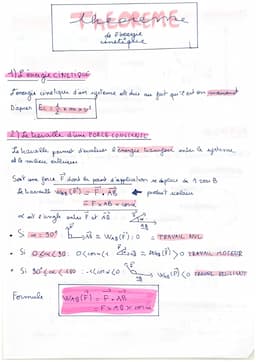 THEOREME
de l'énergie
cinétique
1) L'énergie CINETIQUE
L'énergie cinétique d'un système est due au fait qu'il est en mouvement
D'après Ec = 1/2 × m × v²
2) Le travail d'une FORCE CONSTANTE
Le travail permet d'évaluer l'énergie transférée entre le système
et le milieu extérieur
Soit une force F dont le point d'application se déplace de A vers B
Le travail WAB(F) = F · AB ← produit scalaire
= F × AB × cos α
α est l'angle entre F et AB
• Si α = 90° WAB(F) = 0 = TRAVAIL NUL
• Si 0 < α < 90 : 0 < cos α < 1 WAB(F) > 0 TRAVAIL MOTEUR
• Si 90° < α < 180 : -1 < cos α < 0 WAB(F) < 0 TRAVAIL RESISTANT
Formule WAB(F) = F · AB
= F × AB × cos α